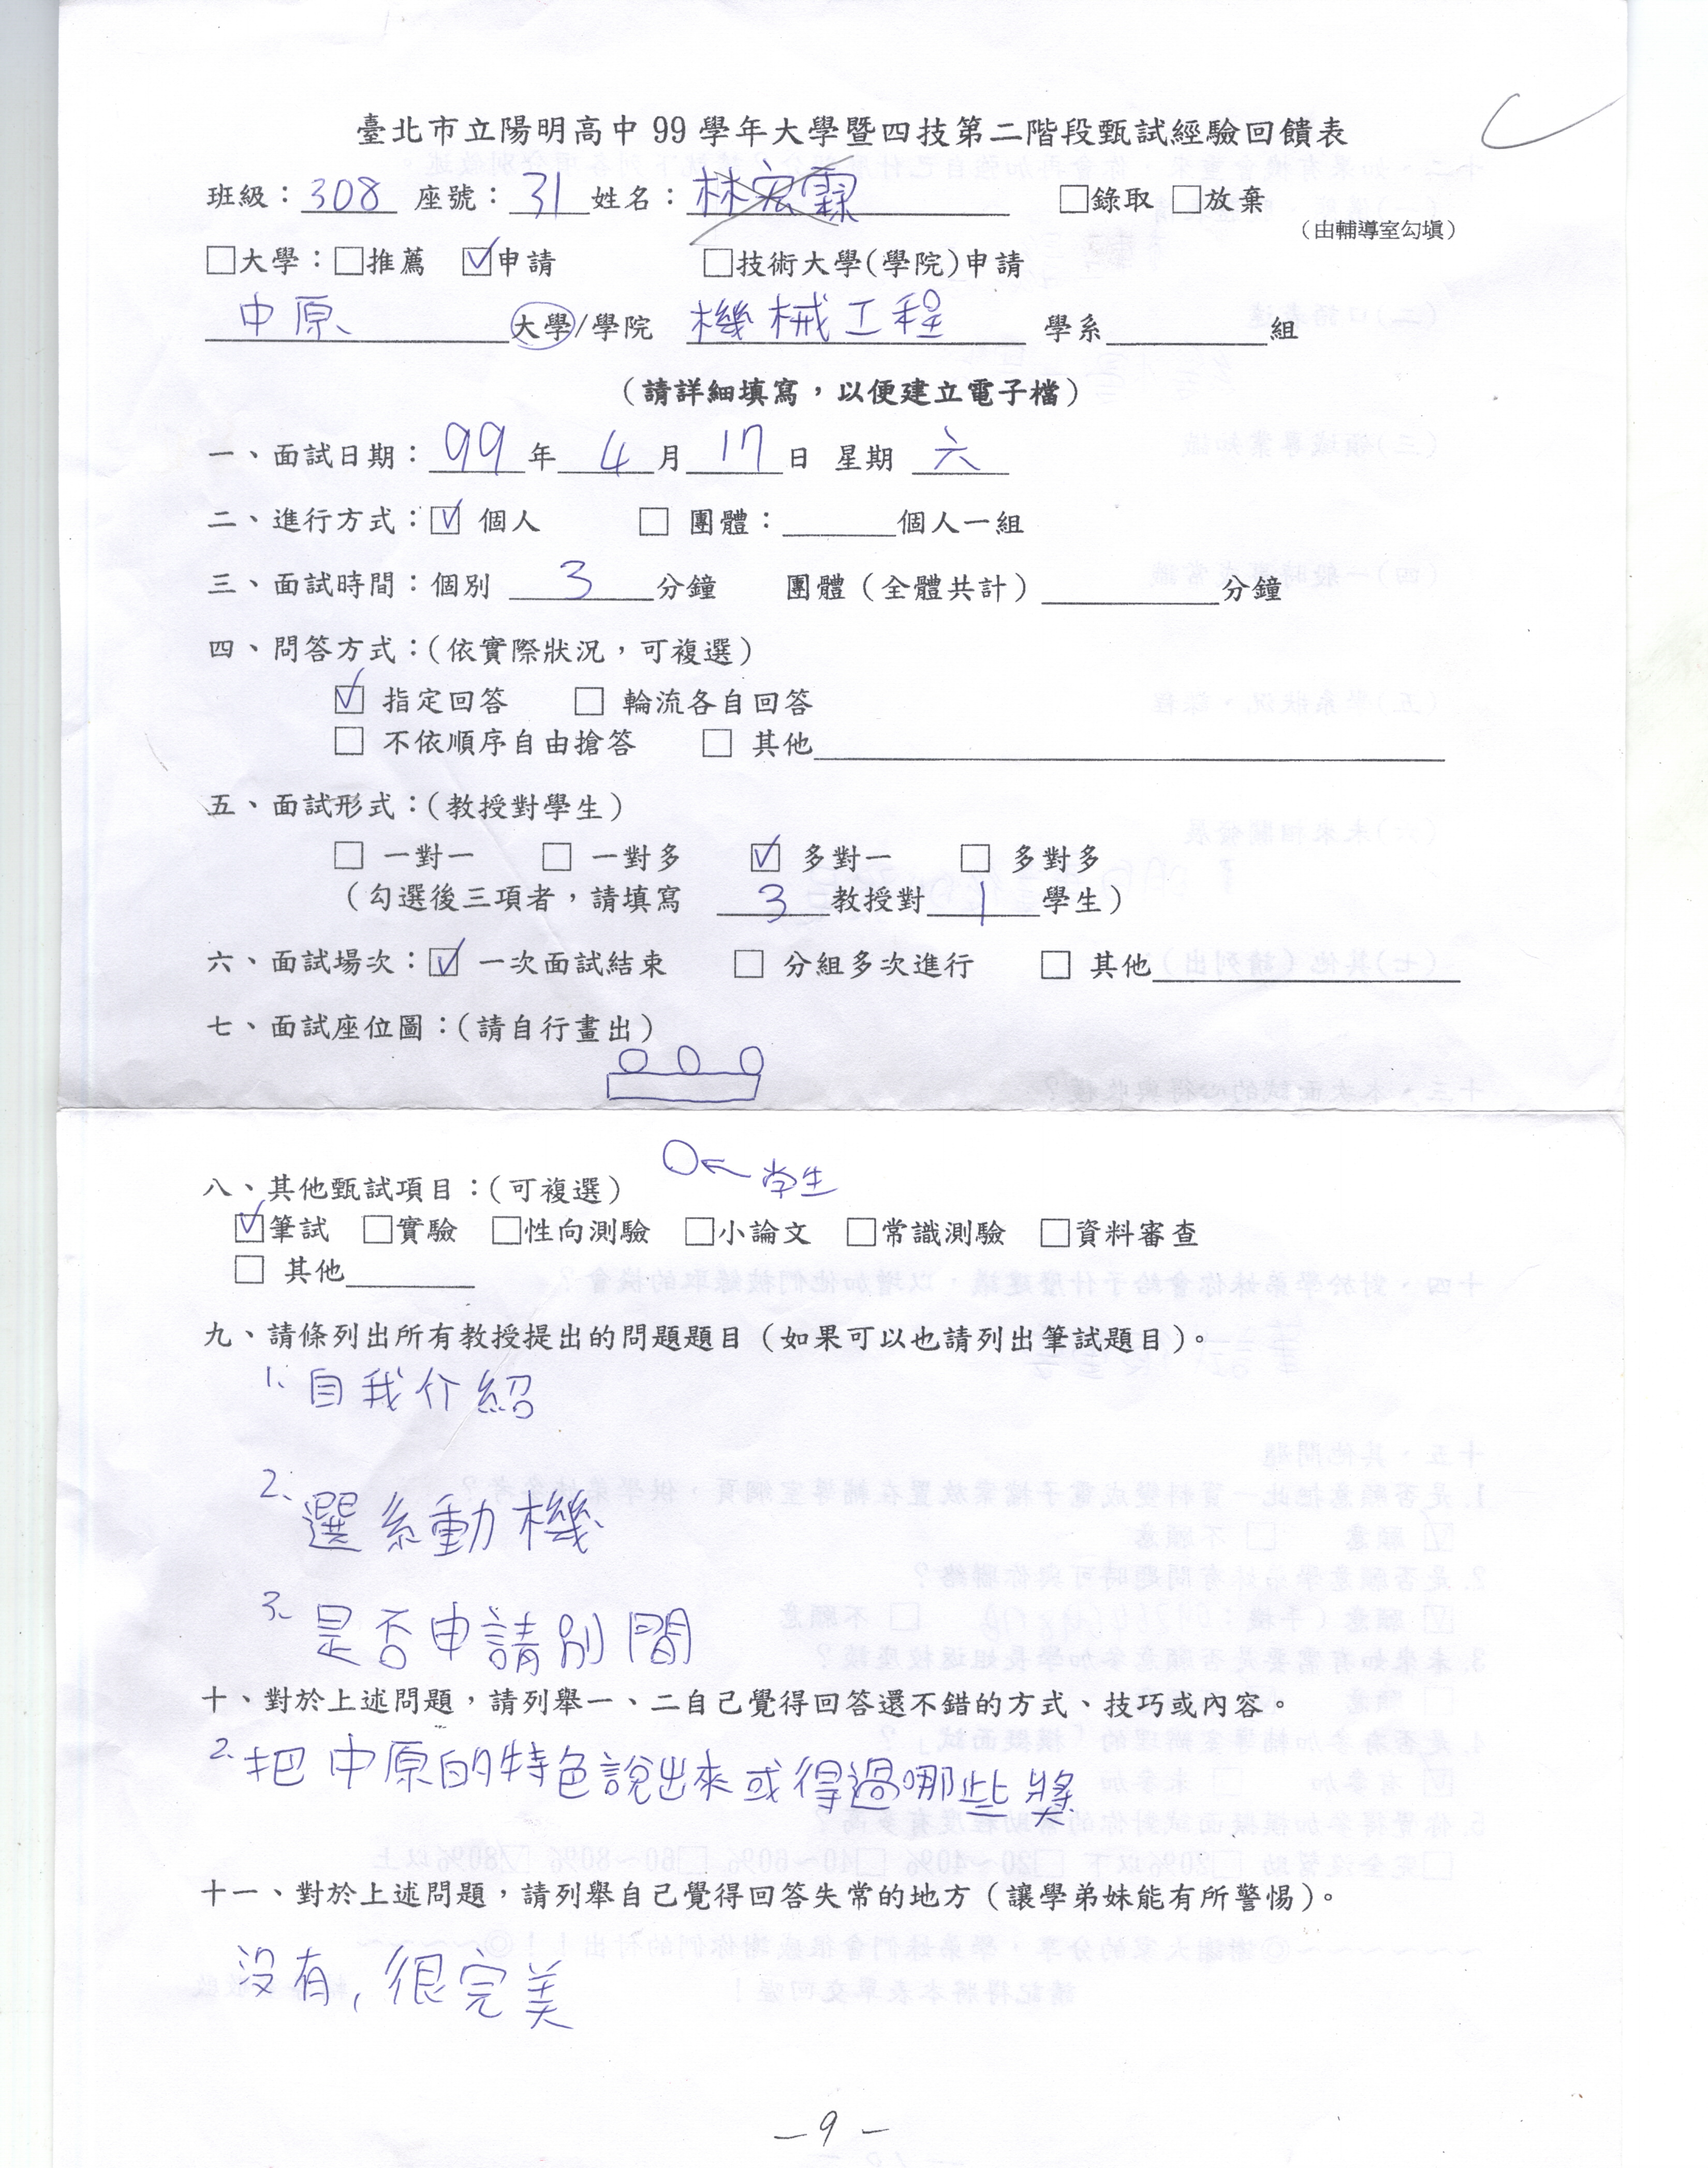 臺北市立陽明高中 99 學年大學暨四技第二階段甄試經驗回饋表
班級：308 座號：31 姓名：林宏霖 □錄取 □放棄
（由輔導室勾填）
□大學：□推薦 ☑申請 □技術大學(學院)申請
中原 大學/學院 機械工程 學系______組
（請詳細填寫，以便建立電子檔）
一、面試日期：99年4月17日 星期 六
二、進行方式：☑ 個人 □ 團體：______個人一組
三、面試時間：個別 3 分鐘 團體（全體共計）______分鐘
四、問答方式：(依實際狀況，可複選)
☑ 指定回答 □ 輪流各自回答
□ 不依順序自由搶答 □ 其他______
五、面試形式：(教授對學生)
□ 一對一 □ 一對多 ☑ 多對一 □ 多對多
（勾選後三項者，請填寫 3 教授對 1 學生）
六、面試場次：☑ 一次面試結束 □ 分組多次進行 □ 其他______
七、面試座位圖：(請自行畫出)
学生
八、其他甄試項目：(可複選)
☑筆試 □實驗 □性向測驗 □小論文 □常識測驗 □資料審查
□ 其他______
九、請條列出所有教授提出的問題題目（如果可以也請列出筆試題目）。
1、自我介紹
2、選系動機
3、是否申請別間
十、對於上述問題，請列舉一、二自己覺得回答還不錯的方式、技巧或內容。
2、把中原的特色說出來或得過哪些獎
十一、對於上述問題，請列舉自己覺得回答失常的地方（讓學弟妹能有所警惕）。
沒有，很完美
－9－